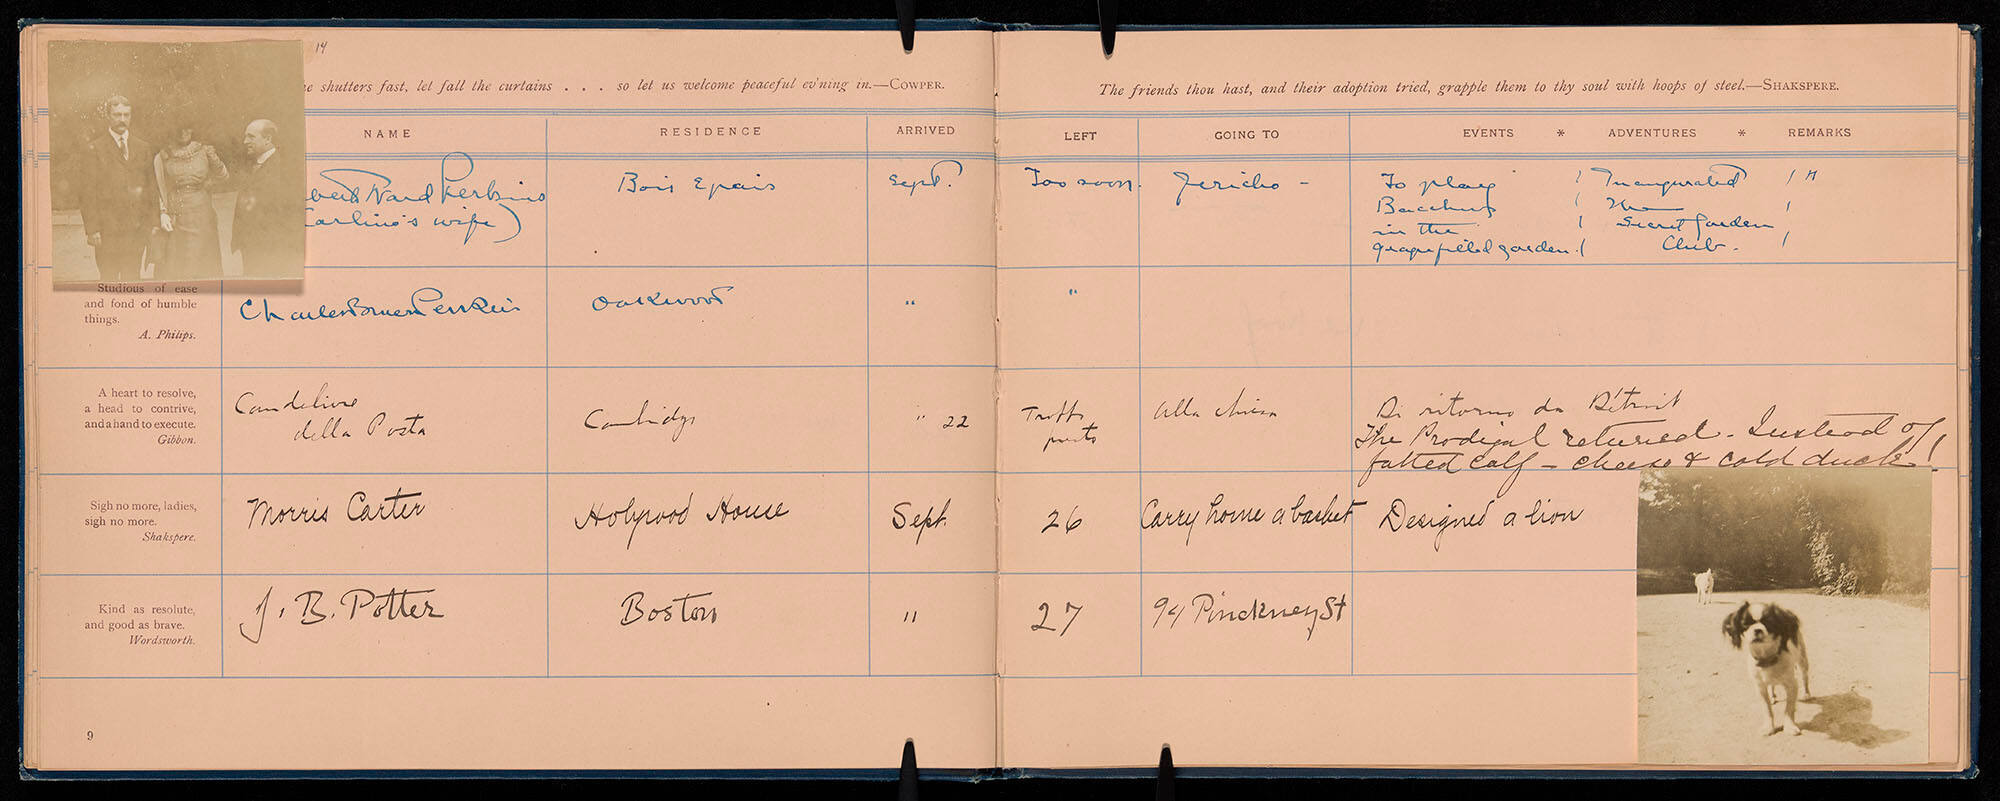 14
e shutters fast, let fall the curtains . . . so let us welcome peaceful ev'ning in.—COWPER.
NAME RESIDENCE ARRIVED
Ward Perkins Bois Epais Sept.
Carlino's wife)
Studious of ease
and fond of humble
things.
A. Philips.
Charles Bruen Perkins Oakwood "
A heart to resolve,
a head to contrive,
and a hand to execute.
Gibbon.
della Posta " 22
Sigh no more, ladies,
sigh no more.
Shakspere.
Morris Carter Holywood House Sept.
Kind as resolute,
and good as brave.
Wordsworth.
J. B. Potter Boston "
9
The friends thou hast, and their adoption tried, grapple them to thy soul with hoops of steel.—SHAKSPERE.
LEFT GOING TO EVENTS * ADVENTURES * REMARKS
Too soon. Jericho - To play Inaugurated
Bacchus
in the Secret Garden
grapefield garden. Club.
"
Di ritorno da Detroit
The Prodigal returned - Instead of
fatted calf - cheese & cold duck!
26 Carry home a basket Designed a lion
27 94 Pinckney St